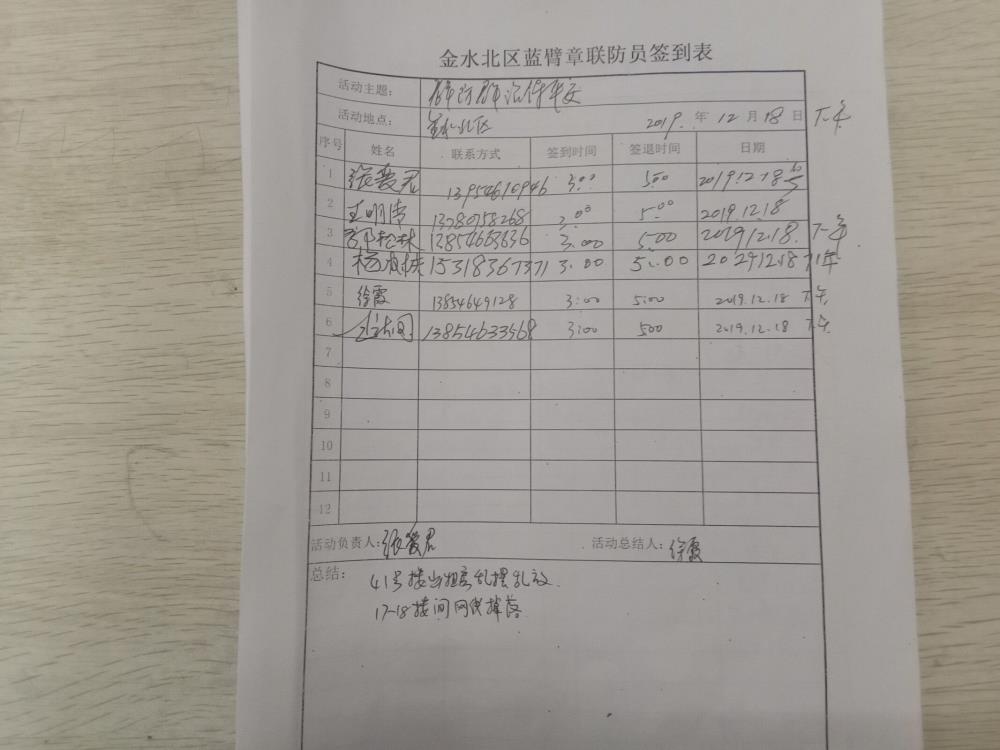 金水北区蓝臂章联防员签到表
活动主题: 群防群治保平安
活动地点: 金水北区 2019. 年 12 月 18 日 下午
序号 姓名 联系方式 签到时间 签退时间 日期
1 张爱君 13954610946 3:00 5:00 2019.12.18
2 王明清 13780758268 3:00 5:00 2019.12.18
3 郭松林 13854663636 3:00 5:00 2019.12.18. 下午
4 杨 15318367371 3:00 5:00 下午
5 徐霞 13854649128 3:00 5:00 2019.12.18 下午
6 13854633568 3:00 500 2019.12.18 下午
7
8
9
10
11
12
活动负责人: 张爱君 活动总结人: 徐霞
总结: 41号楼 乱摆乱放.
17-18楼间网线掉落